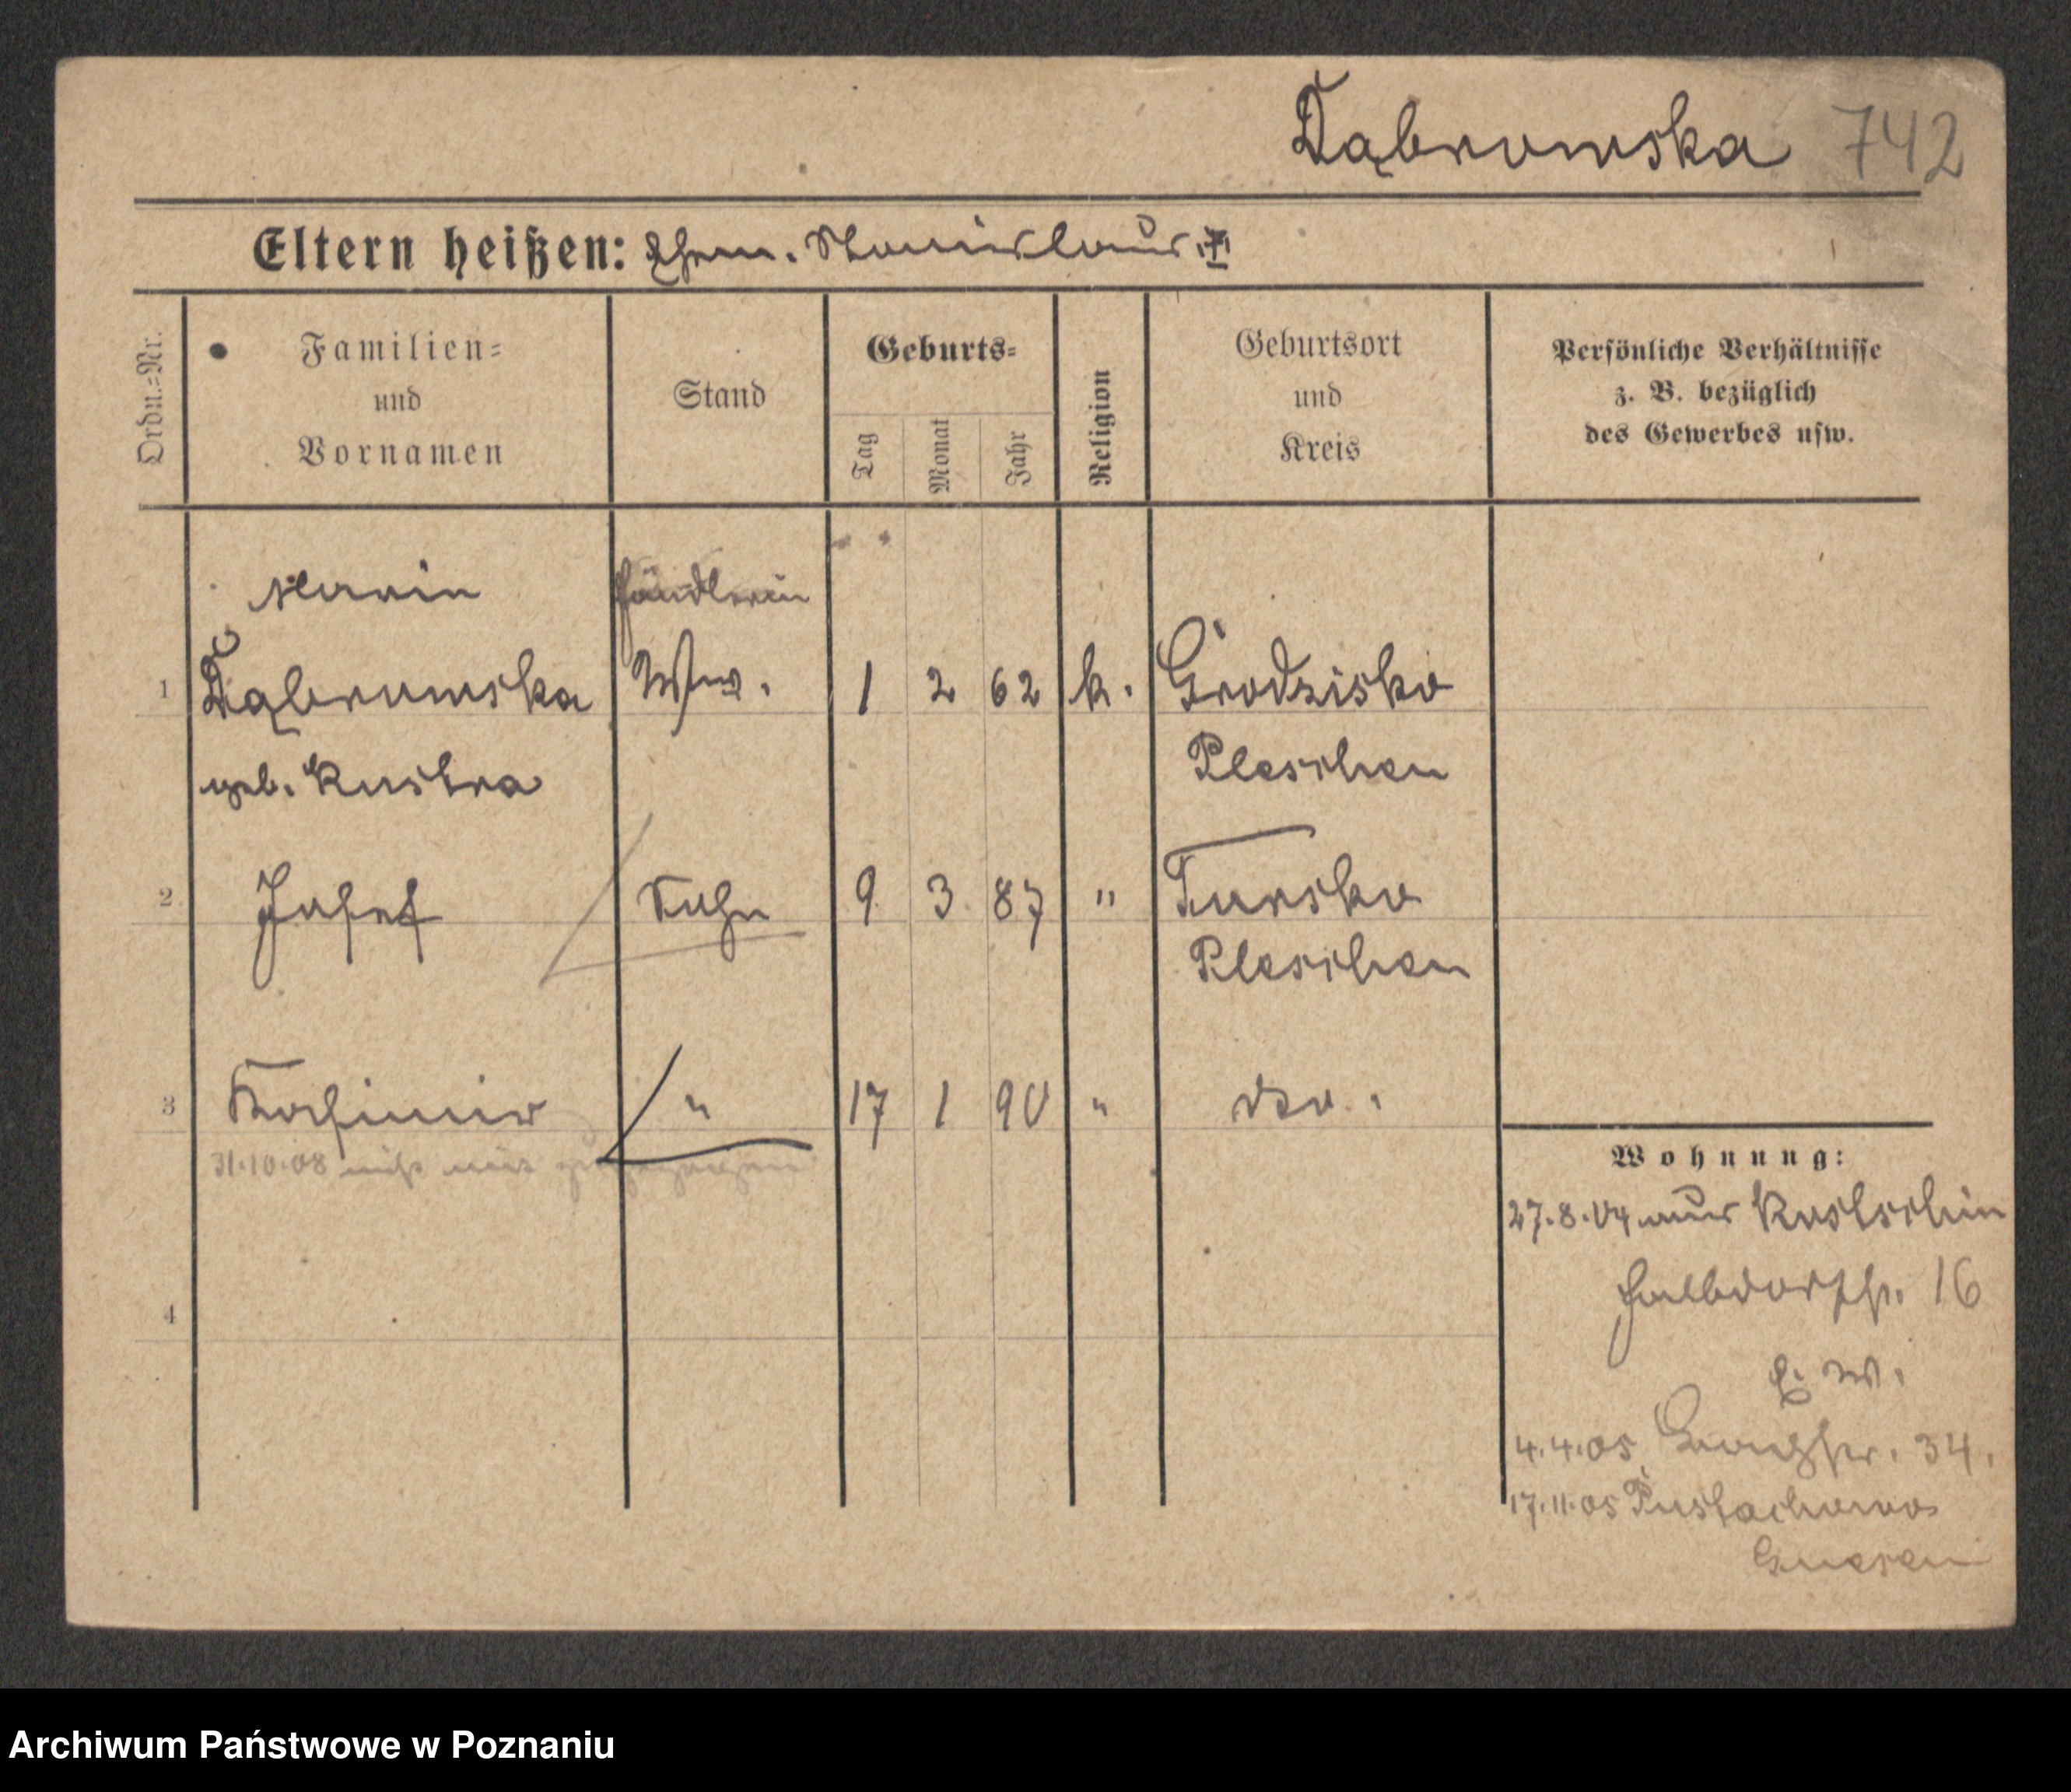 Dąbrowska 742
Eltern heißen: Ehem. Stanislaus †
Ordn.=Nr.
Familien=
und
Vornamen
Stand
Geburts=
Tag
Monat
Jahr
Religion
Geburtsort
und
Kreis
Persönliche Verhältnisse
z. B. bezüglich
des Gewerbes usw.
Marie Händlerin
1 Dąbrowska Ww. 1 2 62 k. Grodzisko
geb. Kustra Pleschen
2 Josef Sohn 9 3 87 " Tursko
Pleschen
3 Kasimir " 17 1 90 " do.
31.10.08 nicht mit zugezogen
4
Wohnung:
27.8.04 aus Kostschin
Halbdorfstr. 16
b. W.
4.4.05 Langstr. 34.
17.11.05 Pustachowo
Gnesen
Archiwum Państwowe w Poznaniu